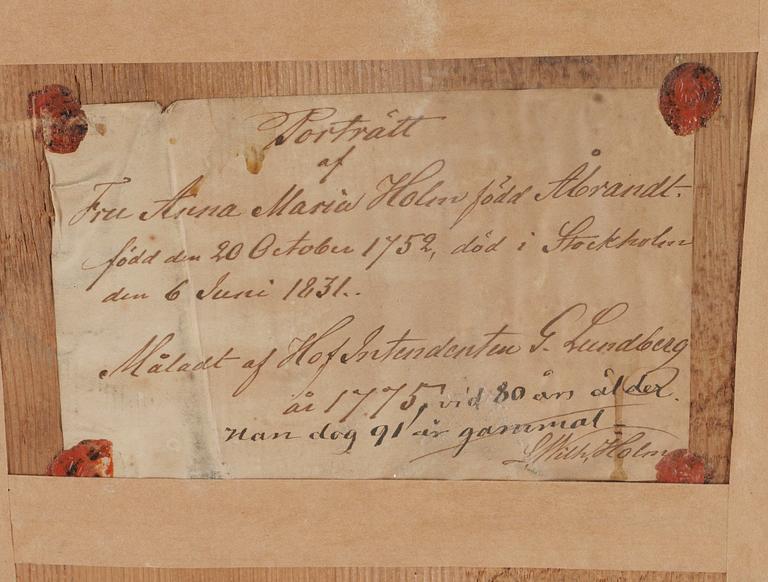 Porträtt
af
Fru Anna Maria Holm född Åbrandt.
född den 20 October 1752, död i Stockholm
den 6 Juni 1831.
Måladt af Hof Intendenten G. Lundberg
år 1775, vid 80 års ålder.
Han dog 91 år gammal
Wilh. Holm